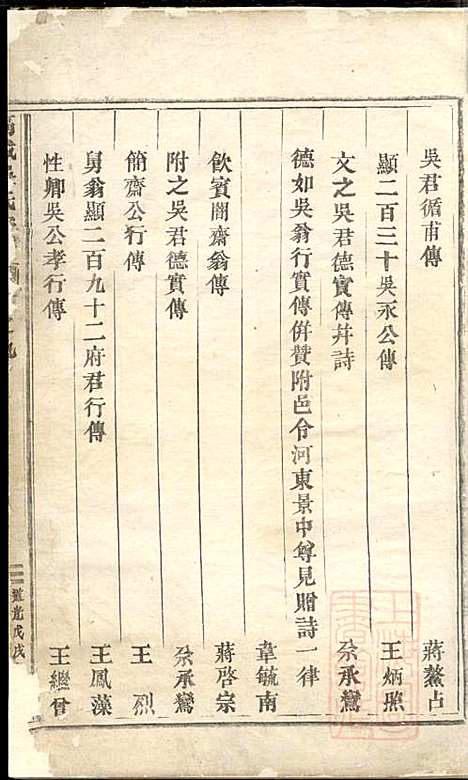 吳君循甫傳 蔣鰲占
顯二百三十吳永公傳 王炳照
文之吳君德實傳幷詩 佘承鸞
德如吳翁行實傳併贊附邑令河東景中尊見贈詩一律
韋毓南
飲賓闇齋翁傳 蔣啓宗
附之吳君德實傳 佘承鸞
簡齋公行傳 王烈
舅翁顯二百九十二府君行傳 王鳳藻
性卿吳公孝行傳 王繼曾
道光戊戌